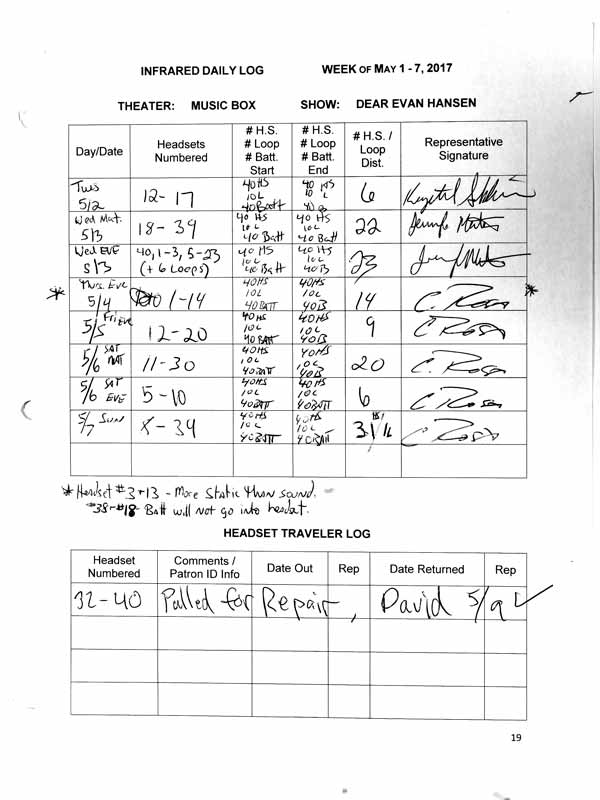 INFRARED DAILY LOG WEEK OF MAY 1 - 7, 2017
THEATER: MUSIC BOX SHOW: DEAR EVAN HANSEN
Day/Date Headsets Numbered # H.S. # Loop # Batt. Start # H.S. # Loop # Batt. End # H.S. / Loop Dist. Representative Signature
Tues 5/2 12-17 40 HS 10 L 40 Batt 40 HS 10 L 40 B 6
Wed Mat. 5/3 18-39 40 HS 10 L 40 Batt 40 HS 10 L 40 Batt 22
Wed EVE 5/3 40, 1-3, 5-23 (+ 6 Loops) 40 HS 10 L 40 Batt 40 HS 10 L 40 B 23
* Thrs. Eve 5/4 1-14 40 HS 10 L 40 BATT 40 HS 10 L 40 B 14 C. Rosa *
5/5 Fri EVE 12-20 40 HS 10 L 40 BATT 40 HS 10 L 40 B 9 C Rosa
5/6 SAT MAT 11-30 40 HS 10 L 40 BATT 40 HS 10 L 40 B 20 C. Rosa
5/6 SAT EVE 5-10 40 HS 10 L 40 BATT 40 HS 10 L 40 BATT 6 C Rosa
5/7 Sun -39 40 HS 10 L 40 BATT 40 HS 10 L 40 BATT C Rosa
* Headset #3+13 - More Static than sound.
#18- Batt will not go into headset.
HEADSET TRAVELER LOG
Headset Numbered Comments / Patron ID Info Date Out Rep Date Returned Rep
32-40 Pulled for Repair, David 5/9
19